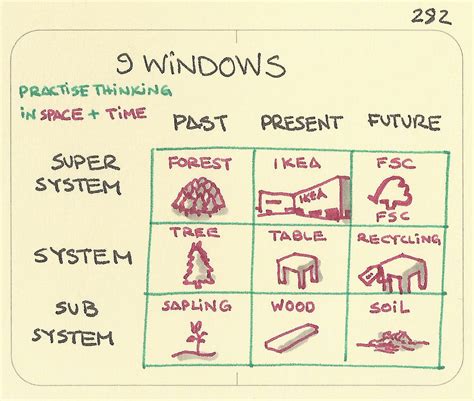 282
9 WINDOWS
PRACTISE THINKING
IN SPACE + TIME
PAST PRESENT FUTURE
SUPER SYSTEM
FOREST IKEA FSC
IKEA
FSC
SYSTEM
TREE TABLE RECYCLING
SUB SYSTEM
SAPLING WOOD SOIL